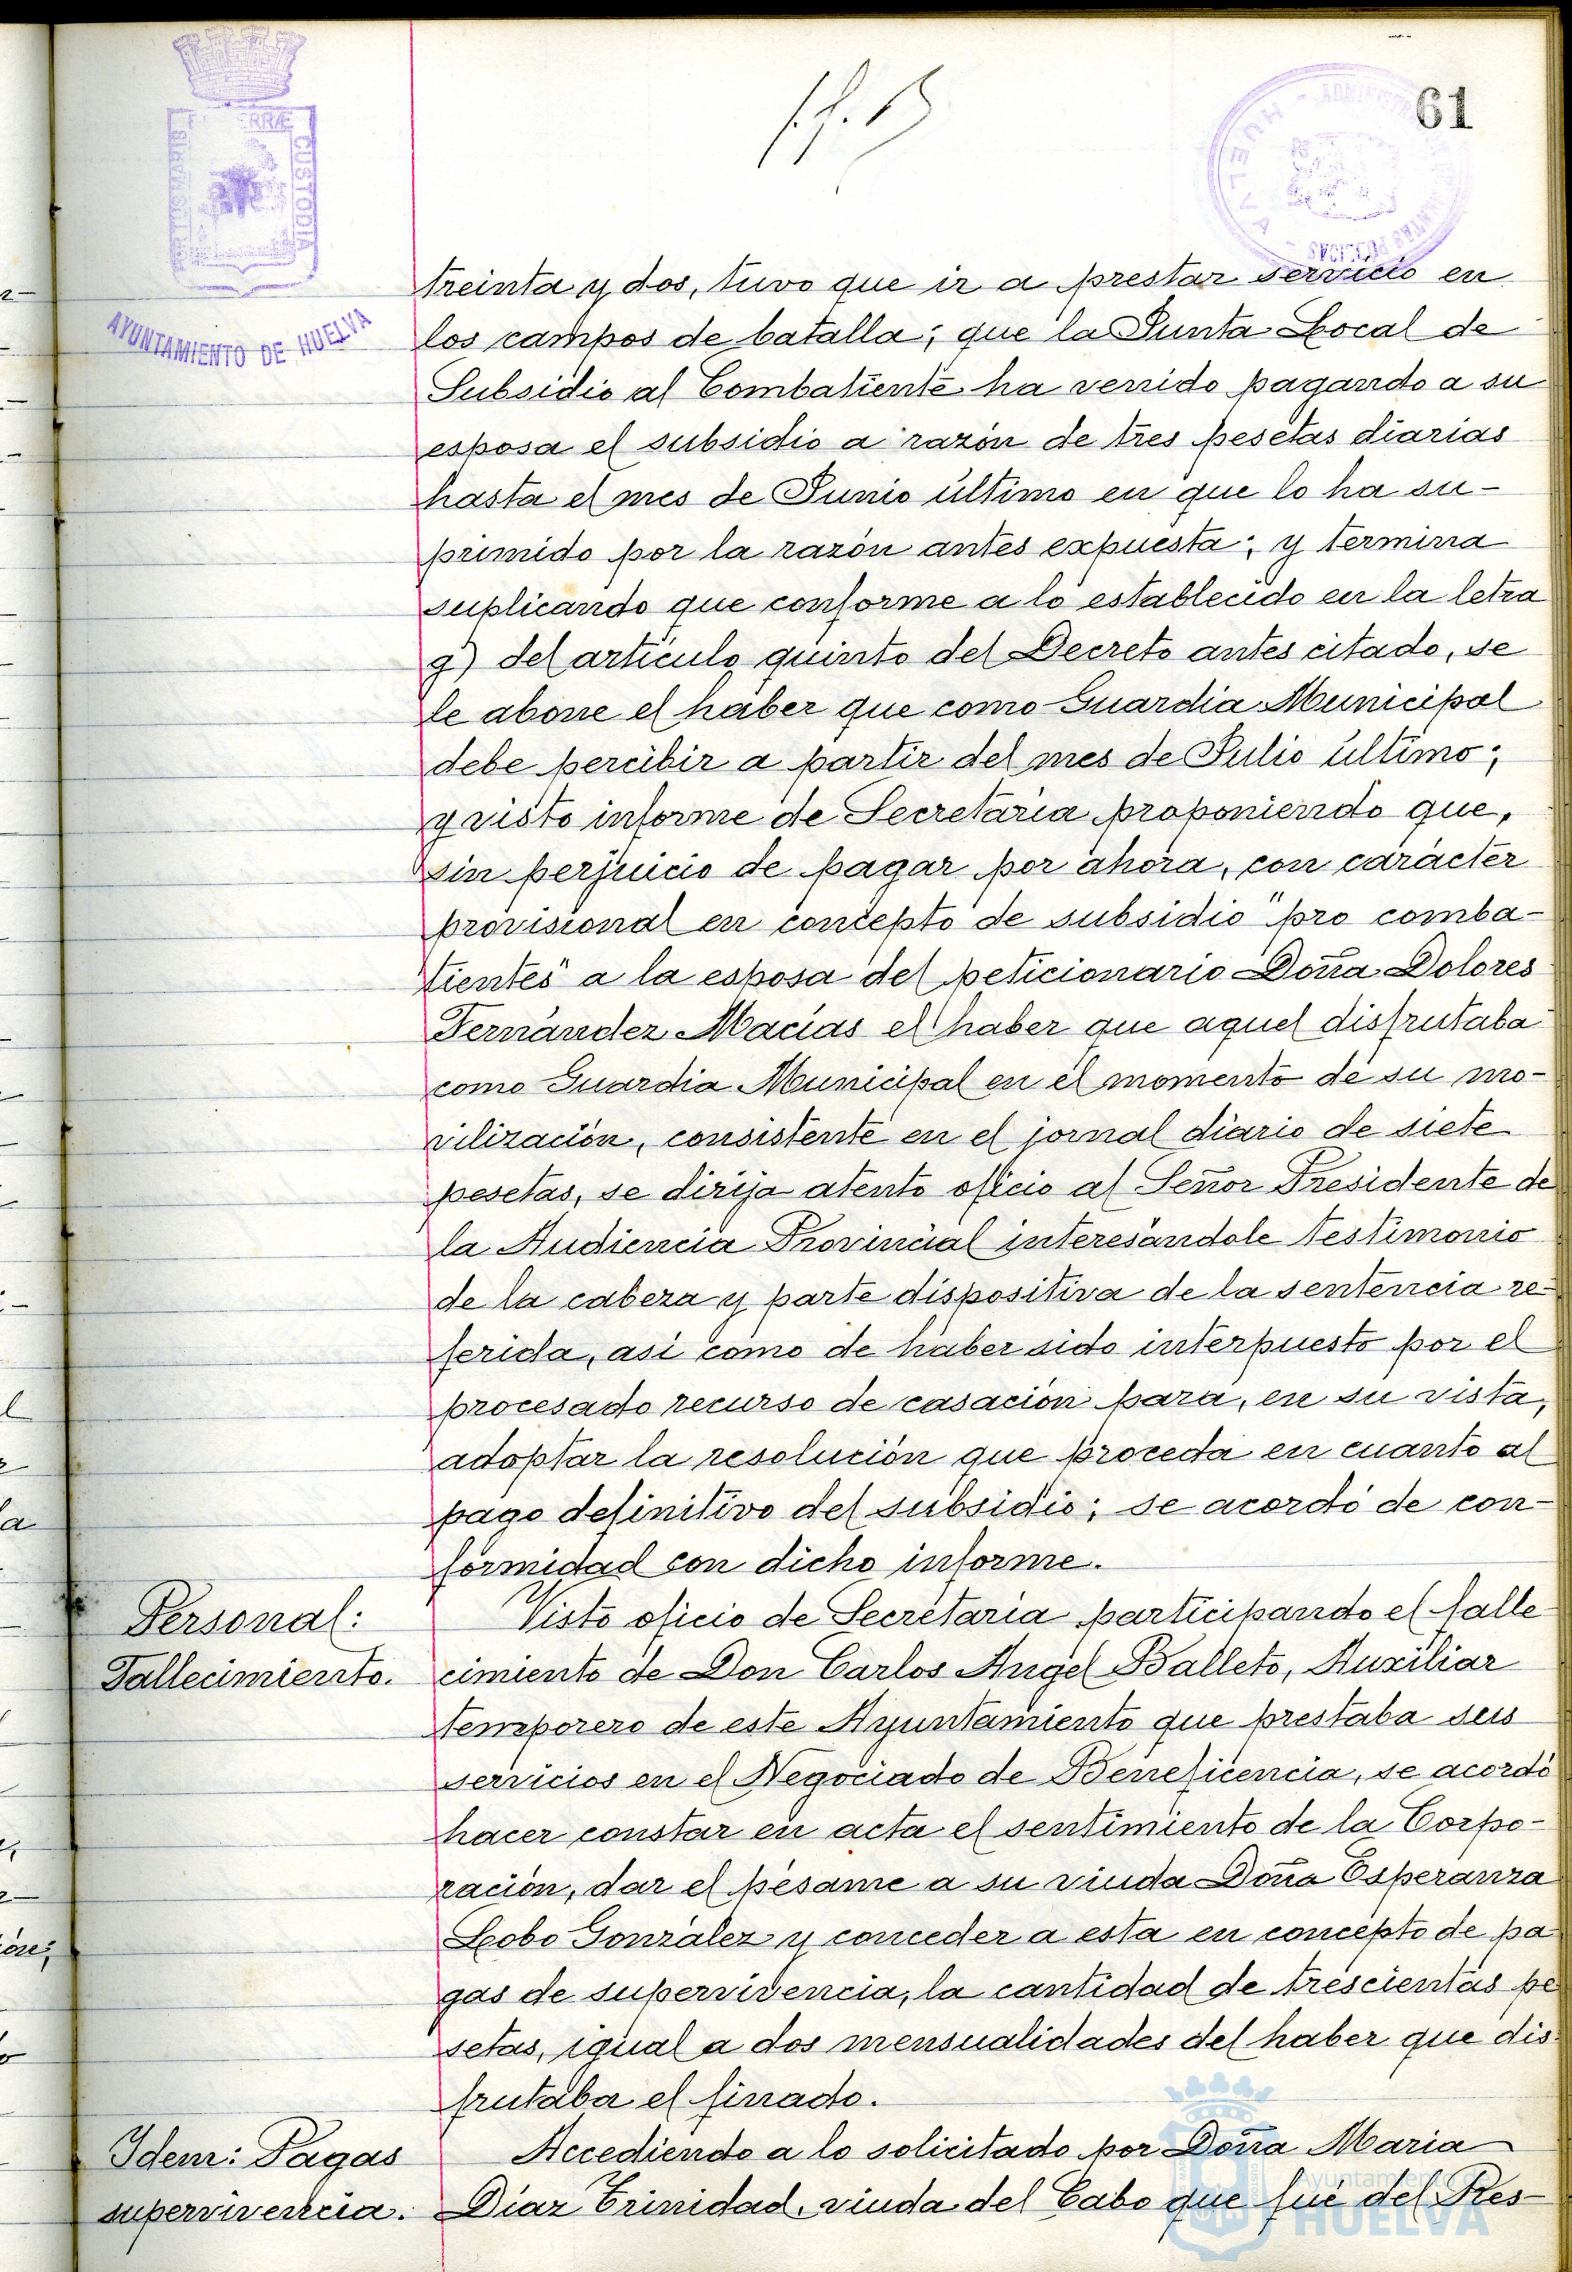 61
AYUNTAMIENTO DE HUELVA
treinta y dos, tuvo que ir a prestar servicio en
los campos de batalla; que la Junta Local de
Subsidio al Combatiente ha venido pagando a su
esposa el subsidio a razón de tres pesetas diarias
hasta el mes de Junio último en que lo ha su-
primido por la razón antes expuesta; y termina
suplicando que conforme a lo establecido en la letra
g) del artículo quinto del Decreto antes citado, se
le abone el haber que como Guardia Municipal
debe percibir a partir del mes de Julio último;
y visto informe de Secretaría proponiendo que,
sin perjuicio de pagar por ahora, con carácter
provisional en concepto de subsidio "pro comba-
tientes" a la esposa del peticionario Doña Dolores
Fernández Macías el haber que aquel disfrutaba
como Guardia Municipal en el momento de su mo-
vilización, consistente en el jornal diario de siete
pesetas, se dirija atento oficio al Señor Presidente de
la Audiencia Provincial interesándole testimonio
de la cabeza y parte dispositiva de la sentencia re-
ferida, así como de haber sido interpuesto por el
procesado recurso de casación para, en su vista,
adoptar la resolución que proceda en cuanto al
pago definitivo del subsidio; se acordó de con-
formidad con dicho informe.
Personal:
Fallecimiento.
Visto oficio de Secretaría participando el falle-
cimiento de Don Carlos Angel Balleto, Auxiliar
temporero de este Ayuntamiento que prestaba sus
servicios en el Negociado de Beneficencia, se acordó
hacer constar en acta el sentimiento de la Corpo-
ración, dar el pésame a su viuda Doña Esperanza
Lobo González y conceder a esta en concepto de pa
gas de supervivencia, la cantidad de trescientas pe
setas, igual a dos mensualidades del haber que dis
frutaba el finado.
Idem: Pagas
supervivencia.
Accediendo a lo solicitado por Doña Maria
Díaz Trinidad, viuda del Cabo que fué del Res-
Ayuntamiento de
HUELVA